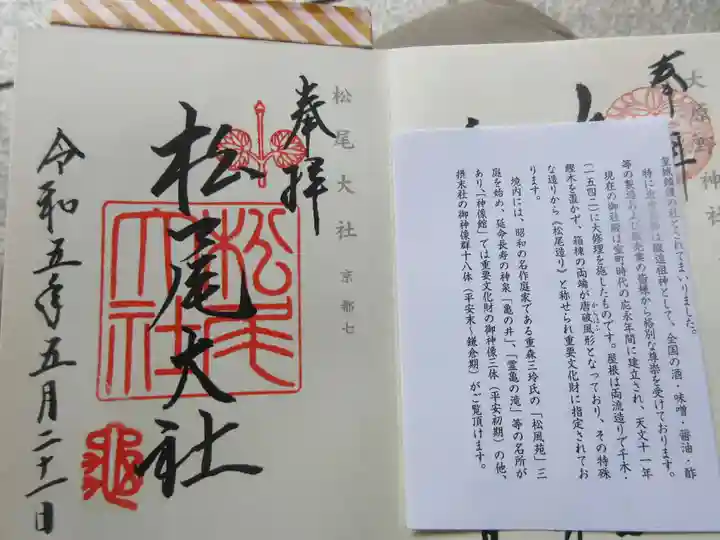 大原野神社
奉拝
皇城鎮護の社とされてまいりました。
特に
は醸造祖神として、全国の酒・味噌・醤油・酢
等の製造および販売業の皆様から格別な尊崇を受けております。
現在の御社殿は室町時代の応永年間に建立され、天文十一年
(一五四二)に大修理を施したものです。屋根は両流造りで千木・
鰹木を置かず、箱棟の両端が唐破風形となっており、その特殊
からはふ
な造りから《松尾造り》と称せられ重要文化財に指定されてお
ります。
境内には、昭和の名作庭家である重森三玲氏の「松風苑」三
庭を始め、延命長寿の神泉「亀の井」、「霊亀の滝」等の名所が
あり、「神像館」では重要文化財の御神像三体(平安初期)の他、
摂末社の御神像群十八体(平安末~鎌倉期)がご覧頂けます。
松尾大社 京都七
奉拝
松尾大社
松尾大社
令和五年五月二十一日